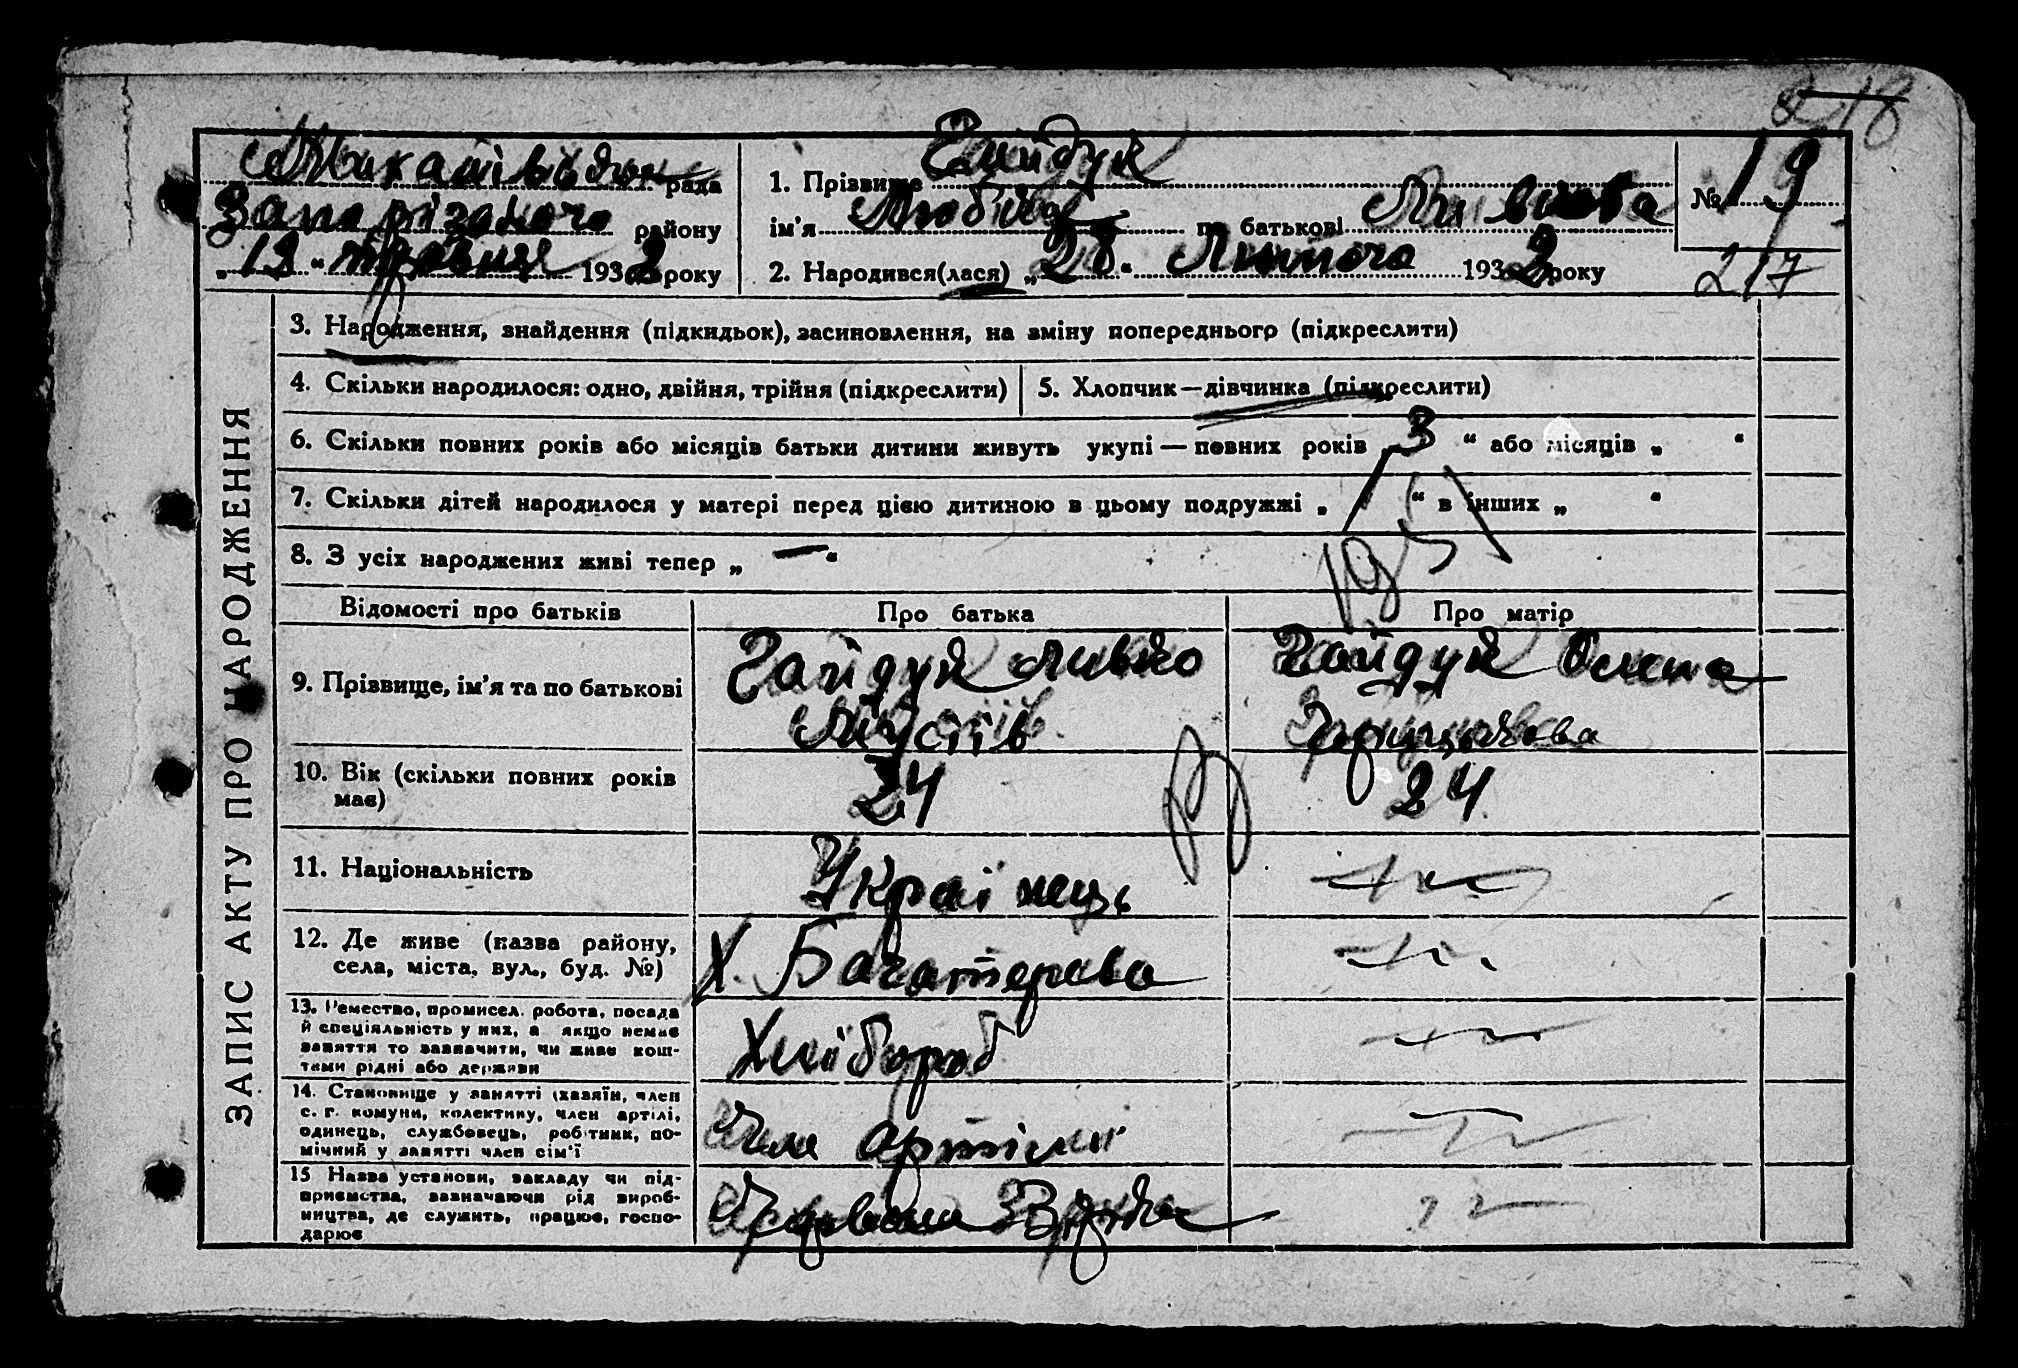 218
Михайлівська рада
Запорізького району
„ 19 “ травня 1932 року
1. Прізвище Гайдук
ім’я по батькові
2. Народився(лася) „ 28 “ Лютого 1932 року
№ 19
217
ЗАПИС АКТУ ПРО НАРОДЖЕННЯ
3. Народження, знайдення (підкидьок), засиновлення, на зміну попереднього (підкреслити)
4. Скільки народилося: одно, двійня, трійня (підкреслити)
5. Хлопчик — дівчинка (підкреслити)
6. Скільки повних років або місяців батьки дитини живуть укупі — повних років „ 3 “ або місяців „ “
7. Скільки дітей народилося у матері перед цією дитиною в цьому подружжі „ “ в інших „ “
8. З усіх народжених живі тепер „ — “
1951
Відомості про батьків Про батька Про матір
9. Прізвище, ім’я та по батькові Гайдук Гайдук Олена
10. Вік (скільки повних років має) 24 24
11. Національність Українець
12. Де живе (назва району, села, міста, вул., буд. №) Х.
13. Ремество, промисел, робота, посада
й спеціяльність у них, а якщо немає
заняття то зазначити, чи живе кош-
тами рідні або держави
Хлібороб
14. Становище у занятті (хазяїн, член
с. г. комуни, колективу, член артілі,
одинець, службовець, робітник, по-
мічний у занятті член сім’ї
Член артілі
15 Назва установи, закладу чи під-
приємства, зазначаючи рід вироб-
ництва, де служить, працює, госпо-
дарює